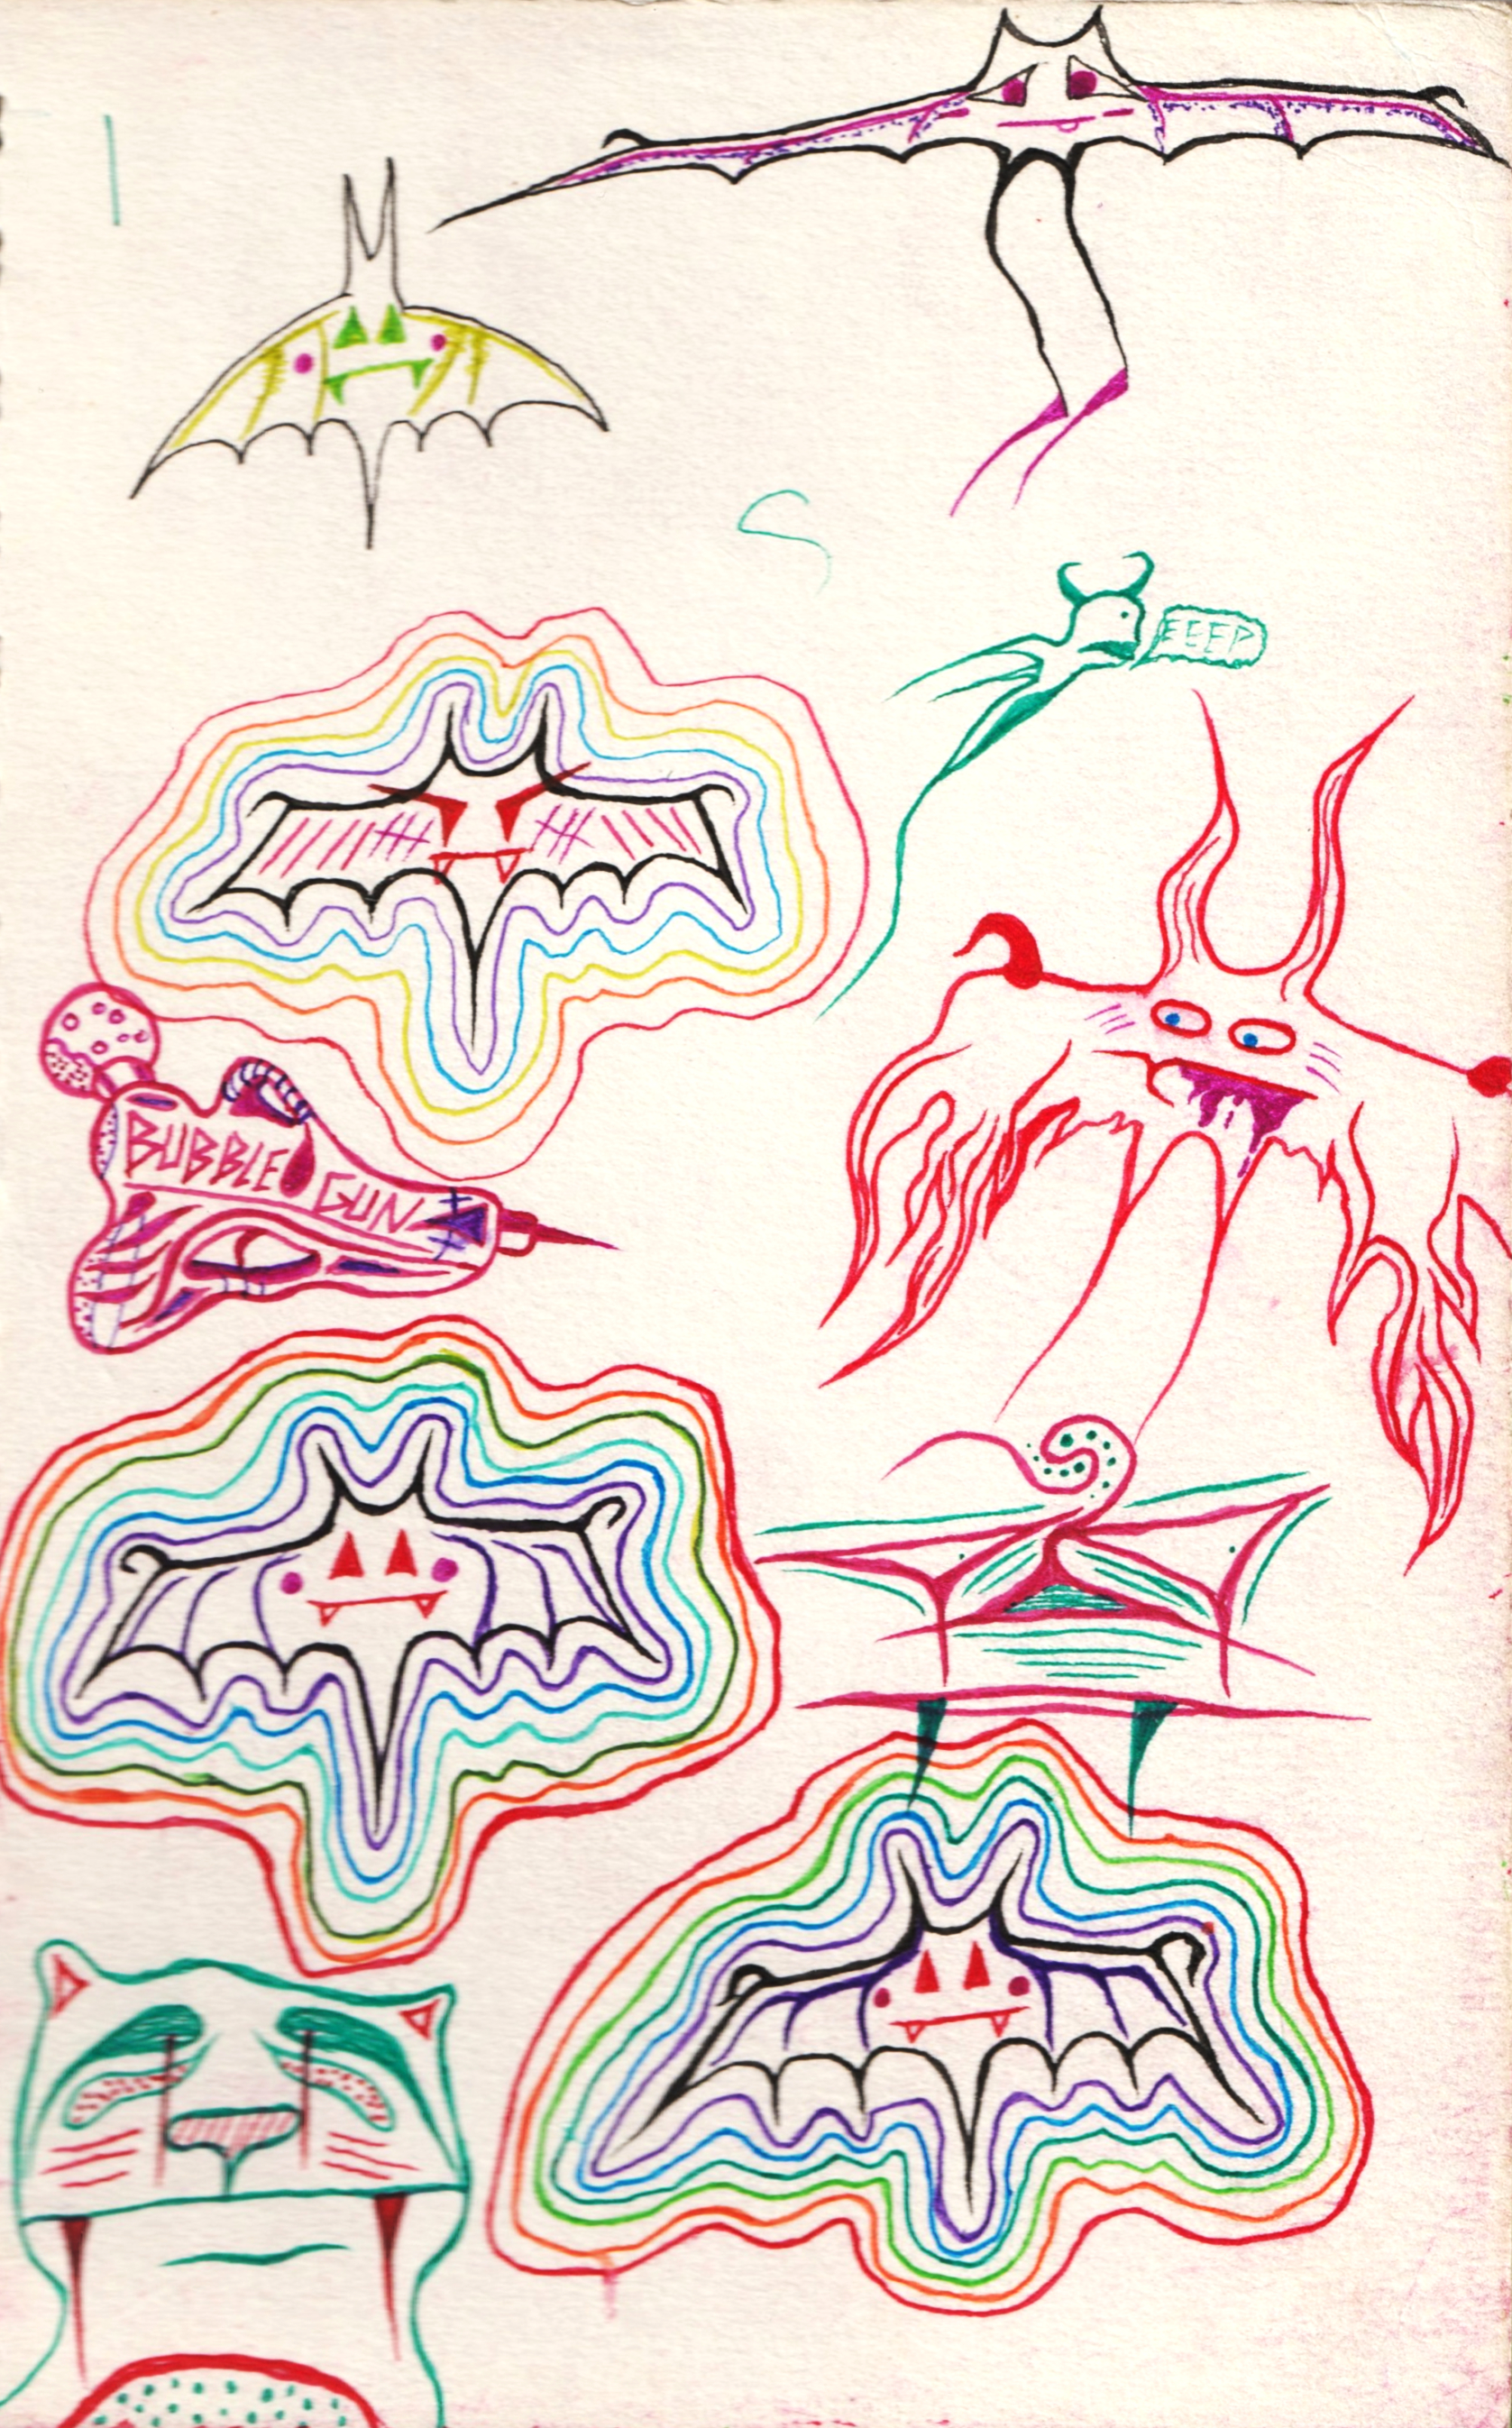 EEEP
BUBBLE GUN